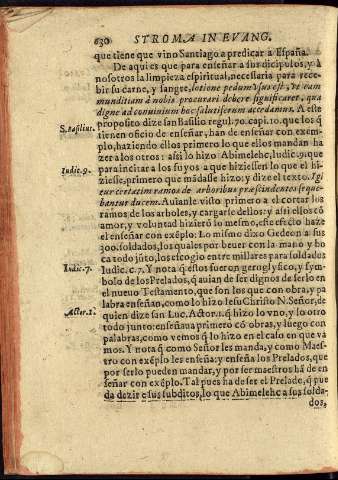 630 STROMA IN EVANG.
que tiene que vino Santiago a predicar a España.
De aqui es que para enseñar a sus dicipulos, y à
nosotros la limpieza espiritual, necessaria para rece
bir su carne, y sangre, lotione pedum vsus est, vt eam
munditiam à nobis procurari debere significaret, qua
digne ad conuiuium hoc salutiferum accedamus. A este
S. Basilius. proposito dize san Basilio regul. 70. capi. 10. que los q̃
tienen oficio de enseñar, han de enseñar con exem-
plo, haziendo ellos primero lo que ellos mandan ha
zer a los otros: assi lo hizo Abimelehc, Iudic. 9. que
Iudic. 9. para incitar a los suyos a que hiziessen lo que el hi-
ziesse, primero que mãdasse hizo; y dize el texto. Igi
tur certatim ramos de arboribus præscindentes seque-
bantur ducem. Auianle visto primero a el cortar los
ramos de los arboles, y cargarse dellos: y assi ellos cõ
amor, y voluntad hiziẽrõ lo mesmo, este efecto haze
el enseñar con exẽplo: Lo mismo dixo Gedeon a sus
300. soldados, los quales por beuer con la mano y bo
ca todo jũto, los escogio entre millares para soldados
Iudic. 7. Iudic. c. 7. Y nota q̃ estos fueron geroglyfico, y sym-
bolo de los Prelados, q̃ auian de ser dignos de serlo en
el nueuo Testamento, que son los que con obra, y pa
labra enseñan, como lo hizo Iesu Christo N. Señor, de
Actor. 1. quien dize san Luc. Actor. 1. q̃ hizo lo vno, y lo otro
todo junto: enseñaua primero cõ obras, y luego con
palabras, como vemos q̃ lo hizo en el caso en que va
mos. Y nota q̃ como Señor les manda, y como Maes-
tro con exẽplo les enseña: y enseña los Prelados, que
por serlo pueden mandar, y por ser maestros hã de en
señar con exẽplo. Tal pues ha de ser el Prelado, q̃ pue
da dezir a sus subditos, lo que Abimelehc a sus solda-
dos,